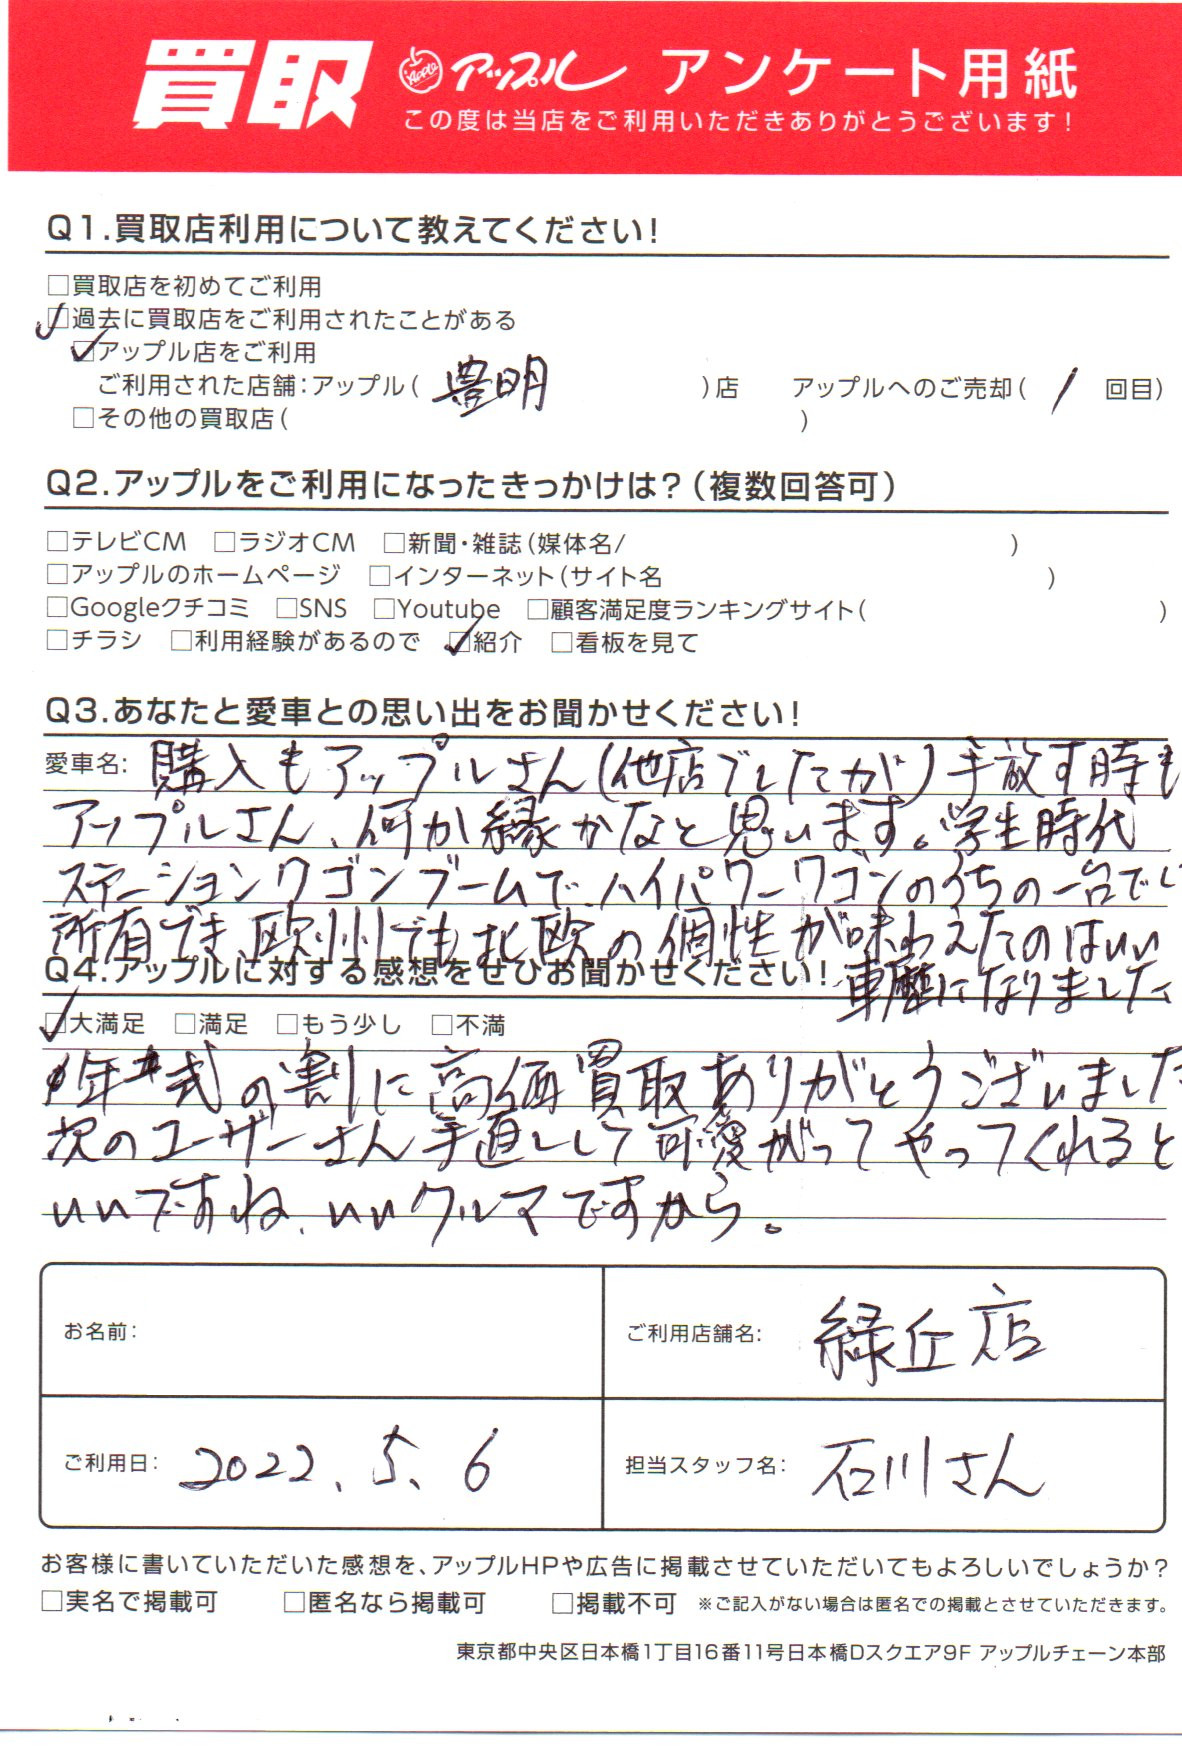 買取 Apple アップル アンケート用紙
この度は当店をご利用いただきありがとうございます!
Q1.買取店利用について教えてください!
□買取店を初めてご利用
☑過去に買取店をご利用されたことがある
☑アップル店をご利用
ご利用された店舗:アップル( 豊明 )店 アップルへのご売却( 1 回目)
□その他の買取店( )
Q2.アップルをご利用になったきっかけは?(複数回答可)
□テレビCM □ラジオCM □新聞・雑誌(媒体名/ )
□アップルのホームページ □インターネット(サイト名 )
□Googleクチコミ □SNS □Youtube □顧客満足度ランキングサイト( )
□チラシ □利用経験があるので ☑紹介 □看板を見て
Q3.あなたと愛車との思い出をお聞かせください!
愛車名: 購入もアップルさん(他店でしたが)手放す時も
アップルさん、何か縁かなと思います。学生時代
ステーションワゴンブームで、ハイパワーワゴンのうちの一台でし
所有でき、欧州でも北欧の個性が味わえたのはいい
車歴になりました
Q4.アップルに対する感想をぜひお聞かせください!
☑大満足 □満足 □もう少し □不満
年式の割に高価買取ありがとうございました
次のユーザーさん手直しして可愛がってやってくれると
いいですね、いいクルマですから。
お名前:
ご利用店舗名: 緑丘店
ご利用日: 2022.5.6
担当スタッフ名: 石川さん
お客様に書いていただいた感想を、アップルHPや広告に掲載させていただいてもよろしいでしょうか?
□実名で掲載可 □匿名なら掲載可 □掲載不可 ※ご記入がない場合は匿名での掲載とさせていただきます。
東京都中央区日本橋1丁目16番11号日本橋Dスクエア9F アップルチェーン本部